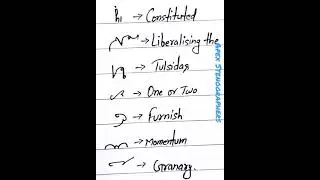 → Constituted
→ Liberalising the
→ Tulsidas
→ One or Two
→ Furnish
→ Momentum
→ Granary.
APEX STENOGRAPHERS